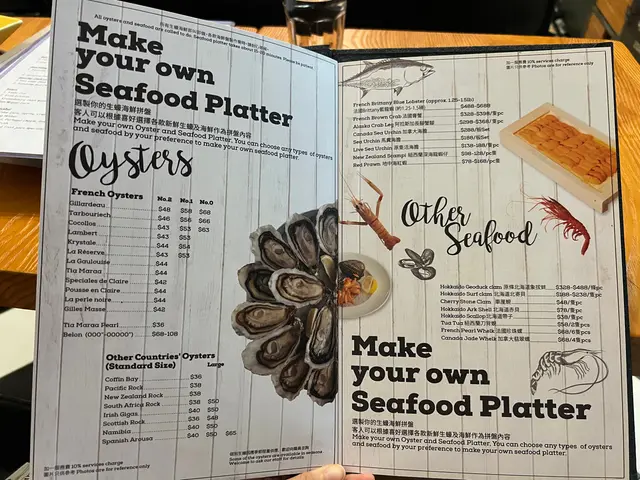 All oysters and seafood are called to do. Seafood platter takes about 15-20 minutes. Please be patient
Make
your own
Seafood Platter
選製你的生蠔海鮮拼盤
客人可以根據喜好選擇各款新鮮生蠔及海鮮作為拼盤內容
Make your own Oyster and Seafood Platter. You can choose any types of oysters
and seafood by your preference to make your own seafood platter.
Oysters
French Oysters No.2 No.1 No.0
Gillardeau $48 $58 $68
Tarbouriech $46 $56 $66
Cocollos $43 $53 $63
Lambert $43 $53
Krystale $44 $54
La Réserve $43 $53
La Gaulouise $44
Tia Maraa $44
Speciales de Claire $42
Pousse en Claire $44
La perle noire $44
Gilles Masse $42
Tia Maraa Pearl $36
Belon (000°-00000°) $68-108
Other Countries' Oysters
(Standard Size) Large
Coffin Bay $36
Pacific Rock $38
New Zealand Rock $38
South Africa Rock $38 $50
Irish Gigas $40 $50
Scottish Rock $38 $48
Namibia $40 $50
Spanish Arousa $40 $50 $65
加一服務費 10% services charge
圖片只供參考 Photos are for reference only
Some of the oysters are available in seasons
Welcome to ask our staff for details
加一服務費 10% services charge
圖片只供參考 Photos are for reference only
French Brittany Blue Lobster (approx. 1.25-1.5lb)
法國Brittany藍龍蝦 (約1.25-1.5磅) $488-$688
French Brown Crab 法國麵包蟹 $328-$398/隻pc
Alaska Crab Leg 阿拉斯加長腳蟹腳 $298-$368/隻pc
Canada Sea Urchin 加拿大海膽 $288/板Set
Sea Urchin 馬糞海膽 $188/板Set
Live Sea Urchin 原隻活海膽 $138-188/隻pc
New Zealand Scampi 紐西蘭深海龍蝦仔 $98-128/隻pc
Red Prawn 地中海紅蝦 $78-$168/隻pc
Other
Seafood
Hokkaido Geoduck clam 原條北海道象拔蚌 $328-$488/條pc
Hokkaido Surf clam 北海道北寄貝 $188-$238/隻pc
Cherry Stone Clam 車厘蜆 $48/隻pc
Hokkaido Ark Shell 北海道赤貝 $78/隻pc
Hokkaido Scallop 北海道帶子 $38/隻pc
Tua Tua 紐西蘭刀背蜆 $58/2隻pcs
French Pearl Whelk 法國珍珠螺 $68/6隻pcs
Canada Jade Whelk 加拿大翡翠螺 $68/4隻pcs
Make
your own
Seafood Platter
選製你的生蠔海鮮拼盤
客人可以根據喜好選擇各款新鮮生蠔及海鮮作為拼盤內容
Make your own Oyster and Seafood Platter. You can choose any types of oysters
and seafood by your preference to make your own seafood platter.